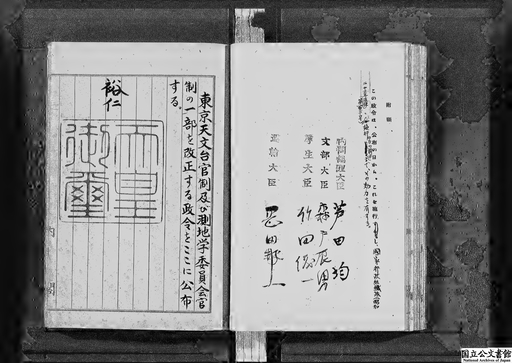 附則
この政令は、公布の日から、これを施行し、
内閣総理大臣 芦田均
文部大臣 森戸辰男
厚生大臣 竹田儀一
運輸大臣 岡田勢一
東京天文台官制及び測地学委員会官
制の一部を改正する政令をここに公布
する。
裕仁
天皇
御璽
内閣
国立公文書館
National Archives of Japan